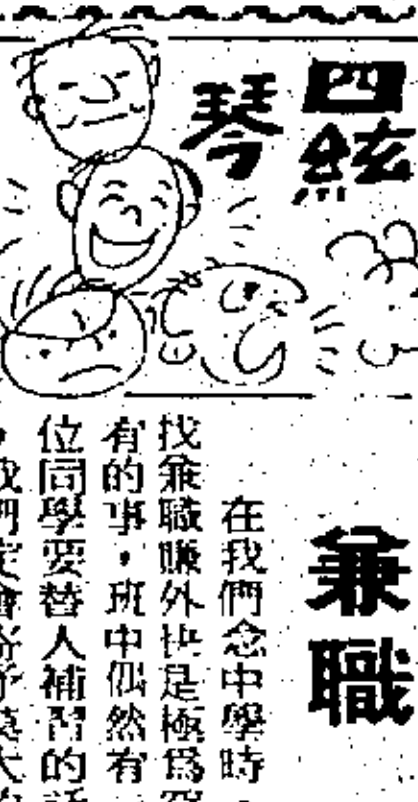 四絃
琴
兼職
在我們念中學時，
找兼職賺外快是極爲罕
有的事，班中偶然有一
位同學要替人補習的話
，我們定會給予莫大的